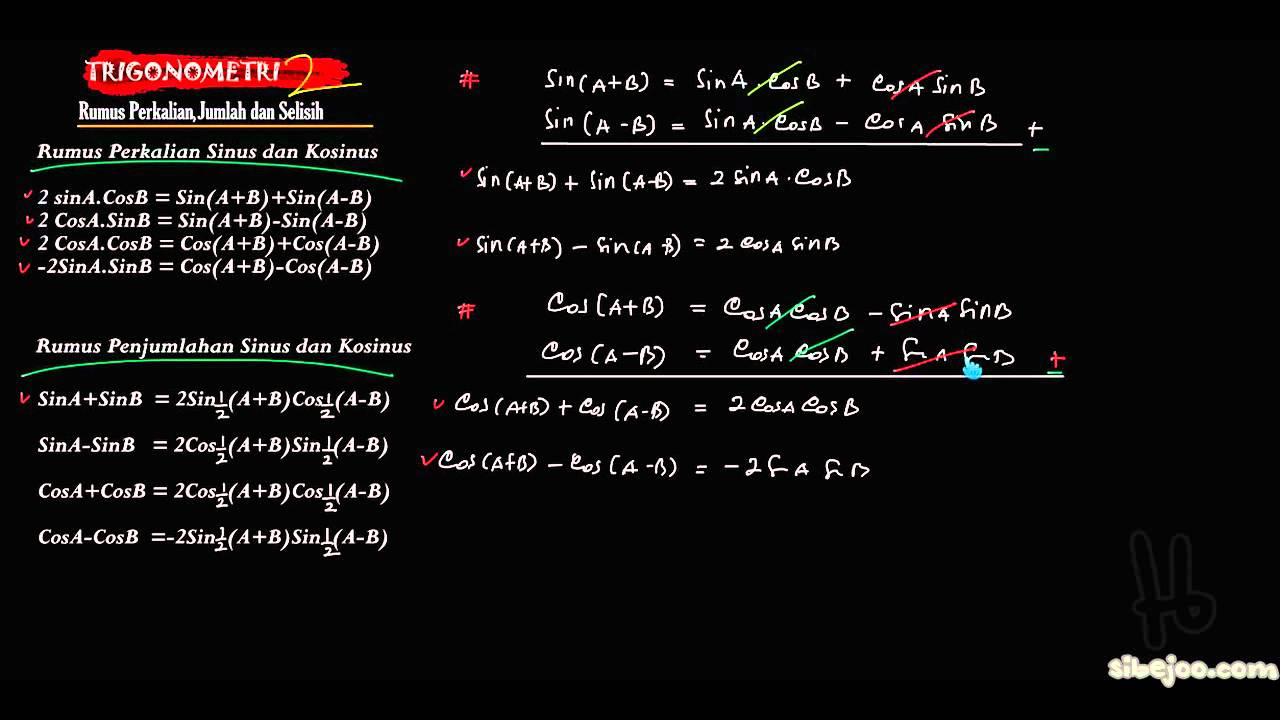 TRIGONOMETRI 2
Rumus Perkalian,Jumlah dan Selisih
Rumus Perkalian Sinus dan Kosinus
2 sinA.CosB = Sin(A+B)+Sin(A-B)
2 CosA.SinB = Sin(A+B)-Sin(A-B)
2 CosA.CosB = Cos(A+B)+Cos(A-B)
-2SinA.SinB = Cos(A+B)-Cos(A-B)
Rumus Penjumlahan Sinus dan Kosinus
SinA+SinB = 2Sin½(A+B)Cos½(A-B)
SinA-SinB = 2Cos½(A+B)Sin½(A-B)
CosA+CosB = 2Cos½(A+B)Cos½(A-B)
CosA-CosB =-2Sin½(A+B)Sin½(A-B)
# Sin(A+B) = SinA.CosB + CosA SinB
Sin(A-B) = SinA.CosB - CosA SinB +
Sin(A+B) + Sin(A-B) = 2 SinA.CosB
Sin(A+B) - Sin(A-B) = 2 CosA SinB
# Cos(A+B) = CosA CosB - SinA SinB
Cos(A-B) = CosA CosB + Sin A Sin B +
Cos(A+B) + Cos(A-B) = 2 CosA CosB
Cos(A+B) - Cos(A-B) = -2 Sin A Sin B
sibejoo.com